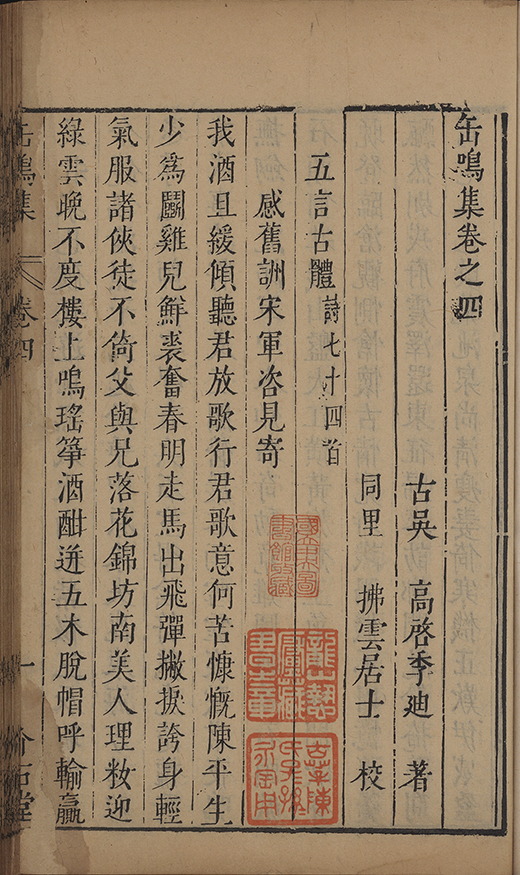 缶鳴集卷之四
古吳 高啓季廸 著
同里 拂雲居士 校
五言古體詩七十四首
感舊詶宋軍咨見寄
我酒且緩傾聽君放歌行君歌意何苦慷慨陳平生
少為鬬雞兒鮮裘奮春明走馬出飛彈撇捩誇身輕
氣服諸俠徒不倚父與兄落花錦坊南美人理妝迎
綠雲晚不度樓上鳴瑤箏酒酣迸五木脫帽呼輸贏
缶鳴集 卷四 一
國立東北圖書館收藏